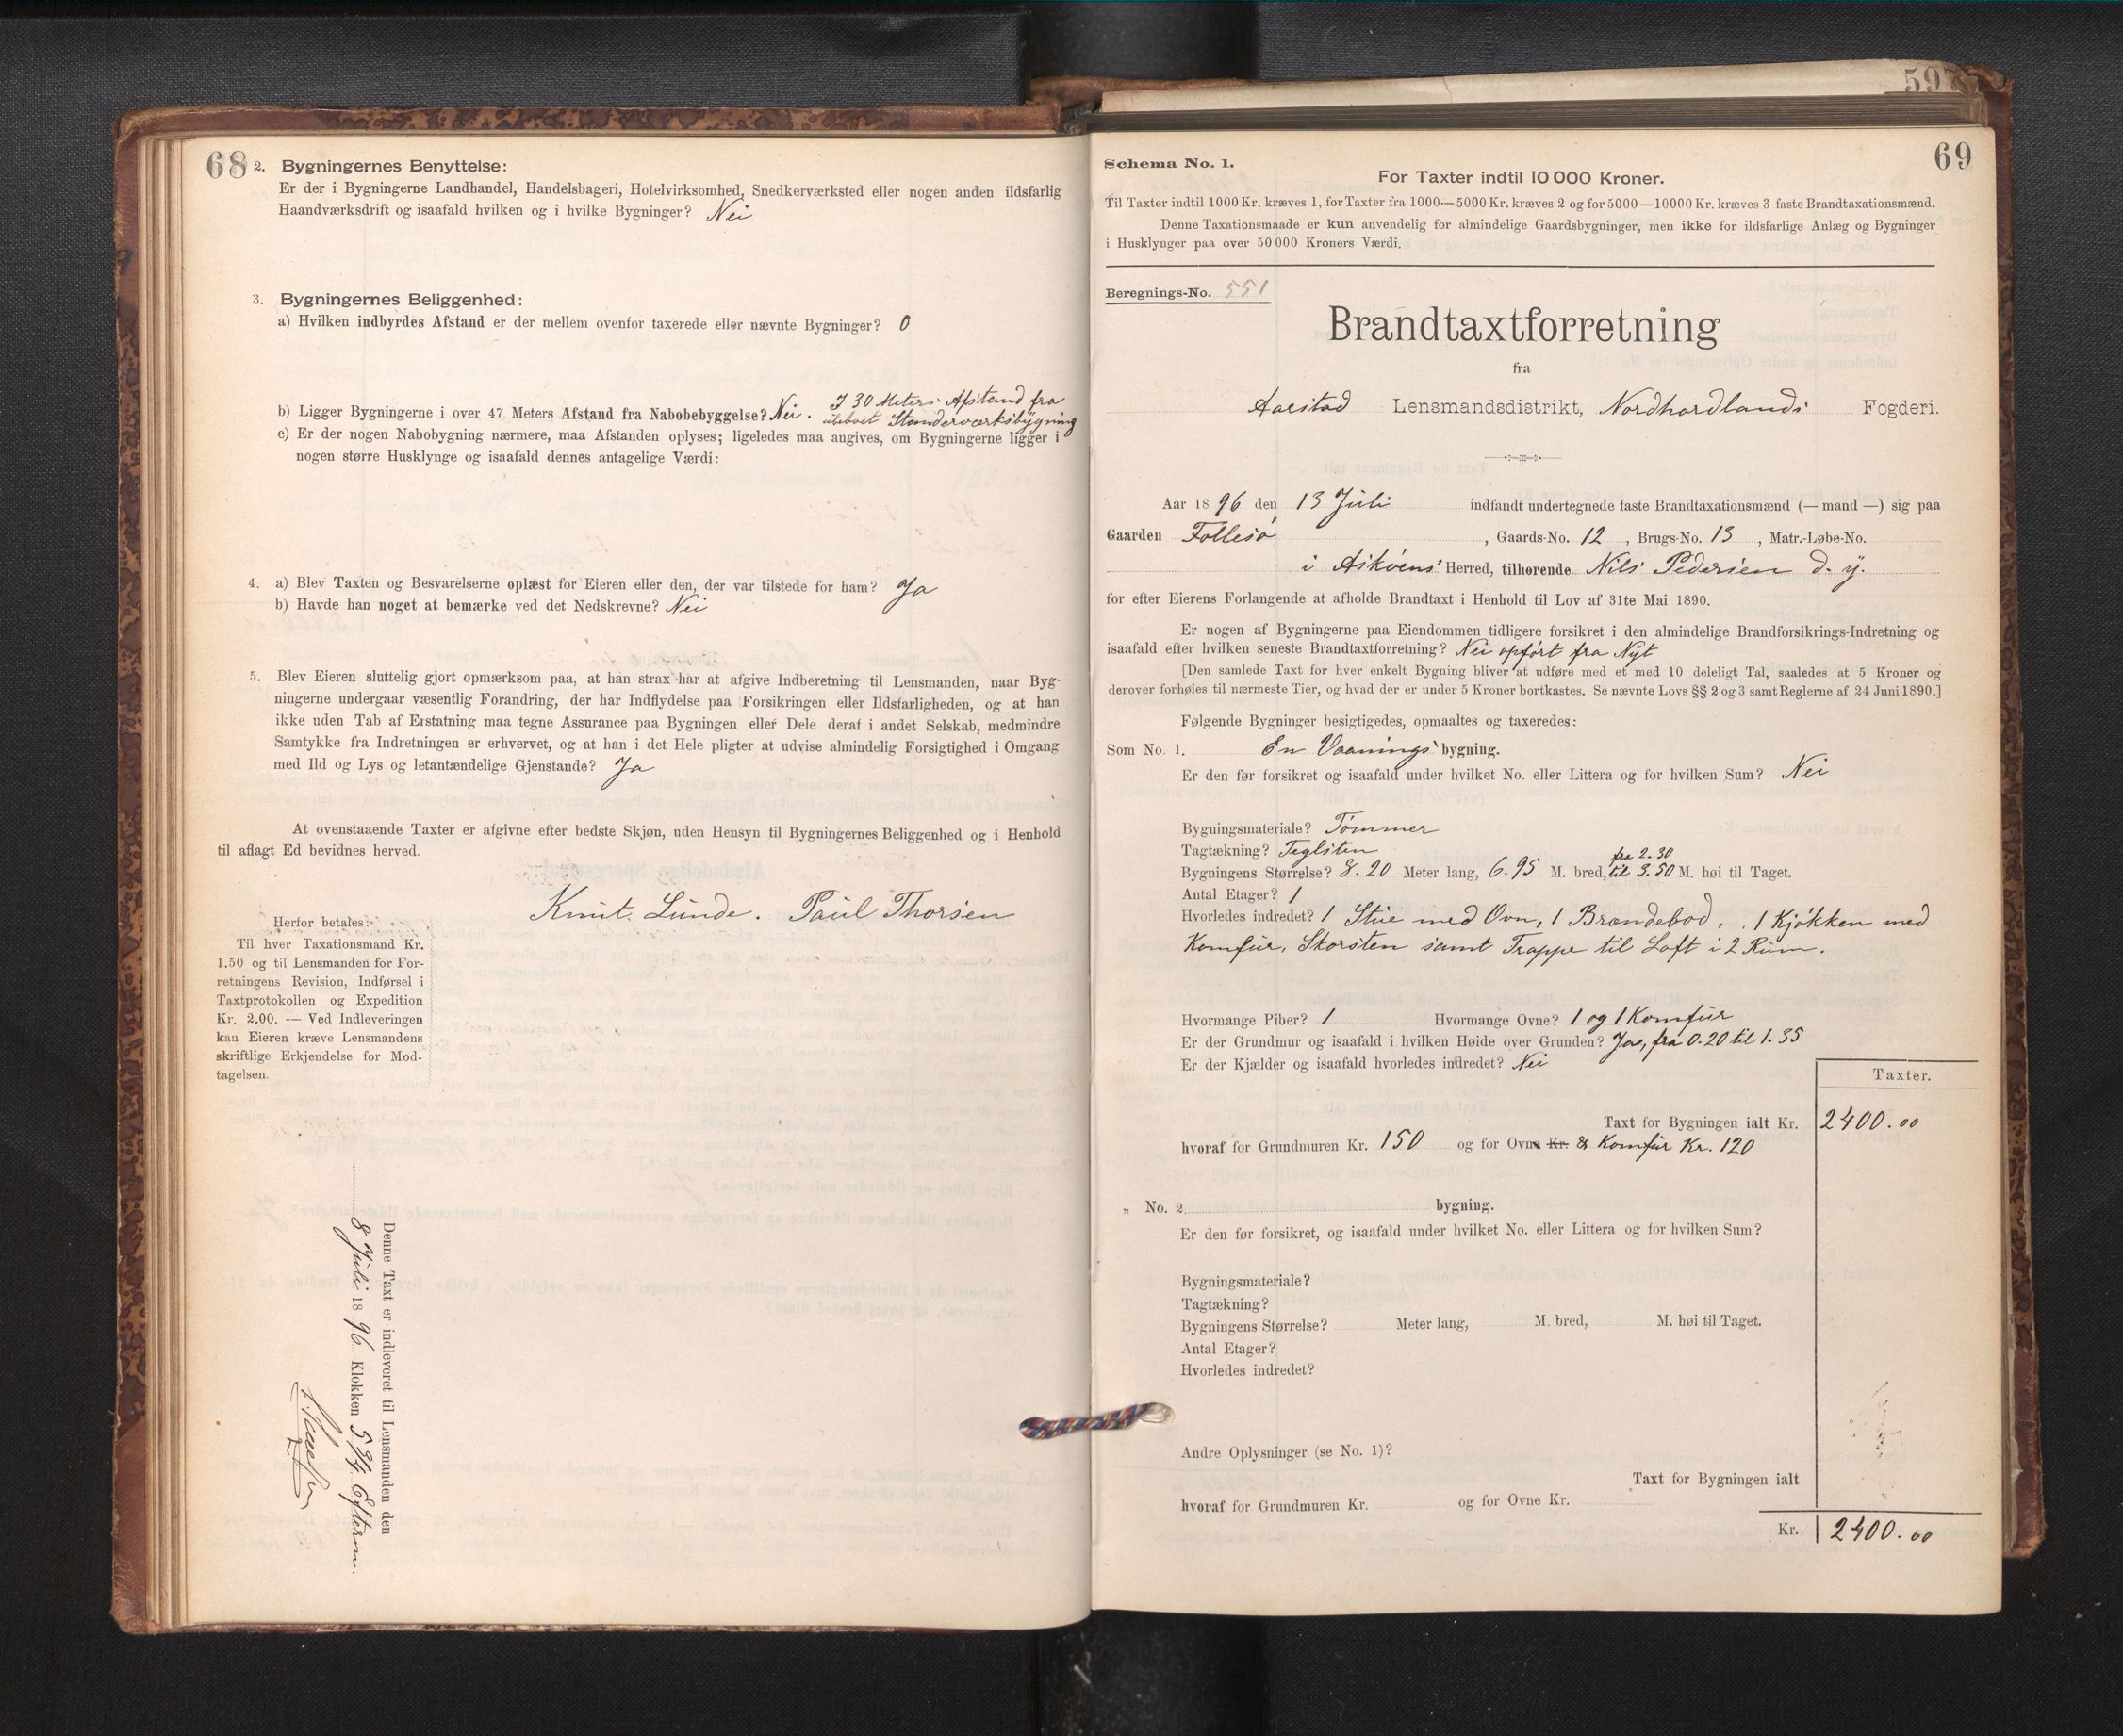 68
2. Bygningernes Benyttelse:
Er der i Bygningerne Landhandel, Handelsbageri, Hotelvirksomhed, Snedkerværksted eller nogen anden ildsfarlig
Haandværksdrift og isaafald hvilken og i hvilke Bygninger? Nei
3. Bygningernes Beliggenhed:
a) Hvilken indbyrdes Afstand er der mellem ovenfor taxerede eller nævnte Bygninger? 0
I 30 Meters Afstand fra
b) Ligger Bygningerne i over 47 Meters Afstand fra Nabobebyggelse? Nei. Standerværksbygning
c) Er der nogen Nabobygning nærmere, maa Afstanden oplyses; ligeledes maa angives, om Bygningerne ligger i
nogen større Husklynge og isaafald dennes antagelige Værdi:
4. a) Blev Taxten og Besvarelserne oplæst for Eieren eller den, der var tilstede for ham? Ja
b) Havde han noget at bemærke ved det Nedskrevne? Nei
5. Blev Eieren sluttelig gjort opmærksom paa, at han strax har at afgive Indberetning til Lensmanden, naar Byg-
ningerne undergaar væsentlig Forandring, der har Indflydelse paa Forsikringen eller Ildsfarligheden, og at han
ikke uden Tab af Erstatning maa tegne Assurance paa Bygningen eller Dele deraf i andet Selskab, medmindre
Samtykke fra Indretningen er erhvervet, og at han i det Hele pligter at udvise almindelig Forsigtighed i Omgang
med Ild og Lys og letantændelige Gjenstande? Ja
At ovenstaaende Taxter er afgivne efter bedste Skjøn, uden Hensyn til Bygningernes Beliggenhed og i Henhold
til aflagt Ed bevidnes herved.
Knut Lunde. Paul Thorsen
Herfor betales:
Til hver Taxationsmand Kr.
1.50 og til Lensmanden for For-
retningens Revision, Indførsel i
Taxtprotokollen og Expedition
Kr. 2,00. — Ved Indleveringen
kan Eieren kræve Lensmandens
skriftlige Erkjendelse for Mod-
tagelsen.
Denne Taxt er indleveret til Lensmanden den
8 Juli 1896 Klokken 5 3/4 Efterm.
597
69
Schema No. 1.
For Taxter indtil 10 000 Kroner.
Til Taxter indtil 1000 Kr. kræves 1, for Taxter fra 1000—5000 Kr. kræves 2 og for 5000—10000 Kr. kræves 3 faste Brandtaxationsmænd.
Denne Taxationsmaade er kun anvendelig for almindelige Gaardsbygninger, men ikke for ildsfarlige Anlæg og Bygninger
i Husklynger paa over 50 000 Kroners Værdi.
Beregnings-No. 551
Brandtaxtforretning
fra
Aarstad Lensmandsdistrikt, Nordhordlands Fogderi.
Aar 1896 den 13 Juli indfandt undertegnede faste Brandtaxationsmænd (— mand —) sig paa
Gaarden Follesö, Gaards-No. 12, Brugs-No. 13, Matr.-Løbe-No.
i Askøens Herred, tilhørende Nils Pedersen d. y.
for efter Eierens Forlangende at afholde Brandtaxt i Henhold til Lov af 31te Mai 1890.
Er nogen af Bygningerne paa Eiendommen tidligere forsikret i den almindelige Brandforsikrings-Indretning og
isaafald efter hvilken seneste Brandtaxtforretning? Nei opført fra Nyt
[Den samlede Taxt for hver enkelt Bygning bliver at udføre med et med 10 deleligt Tal, saaledes at 5 Kroner og
derover forhøies til nærmeste Tier, og hvad der er under 5 Kroner bortkastes. Se nævnte Lovs §§ 2 og 3 samt Reglerne af 24 Juni 1890.]
Følgende Bygninger besigtigedes, opmaaltes og taxeredes:
Som No. 1. En Vaanings bygning.
Er den før forsikret og isaafald under hvilket No. eller Littera og for hvilken Sum? Nei
Bygningsmateriale? Tømmer
Tagtækning? Teglsten
fra 2.30
Bygningens Størrelse? 8.20 Meter lang, 6.95 M. bred, til 3.50 M. høi til Taget.
Antal Etager? 1
Hvorledes indredet? 1 Stue med Ovn, 1 Brændebod, 1 Kjøkken med
Komfur, Skorsten samt Trappe til Loft i 2 Rum.
Hvormange Piber? 1 Hvormange Ovne? 1 og 1 Komfur
Er der Grundmur og isaafald i hvilken Høide over Grunden? Ja, fra 0.20 til 1.35
Er der Kjælder og isaafald hvorledes indredet? Nei
Taxter.
Taxt for Bygningen ialt Kr. 2400.00
hvoraf for Grundmuren Kr. 150 og for Ovne Kr. & Komfur Kr. 120
„ No. 2 bygning.
Er den før forsikret, og isaafald under hvilket No. eller Littera og for hvilken Sum?
Bygningsmateriale?
Tagtækning?
Bygningens Størrelse? Meter lang, M. bred, M. høi til Taget.
Antal Etager?
Hvorledes indredet?
Andre Oplysninger (se No. 1)?
Taxt for Bygningen ialt
hvoraf for Grundmuren Kr. og for Ovne Kr.
Kr. 2400.00